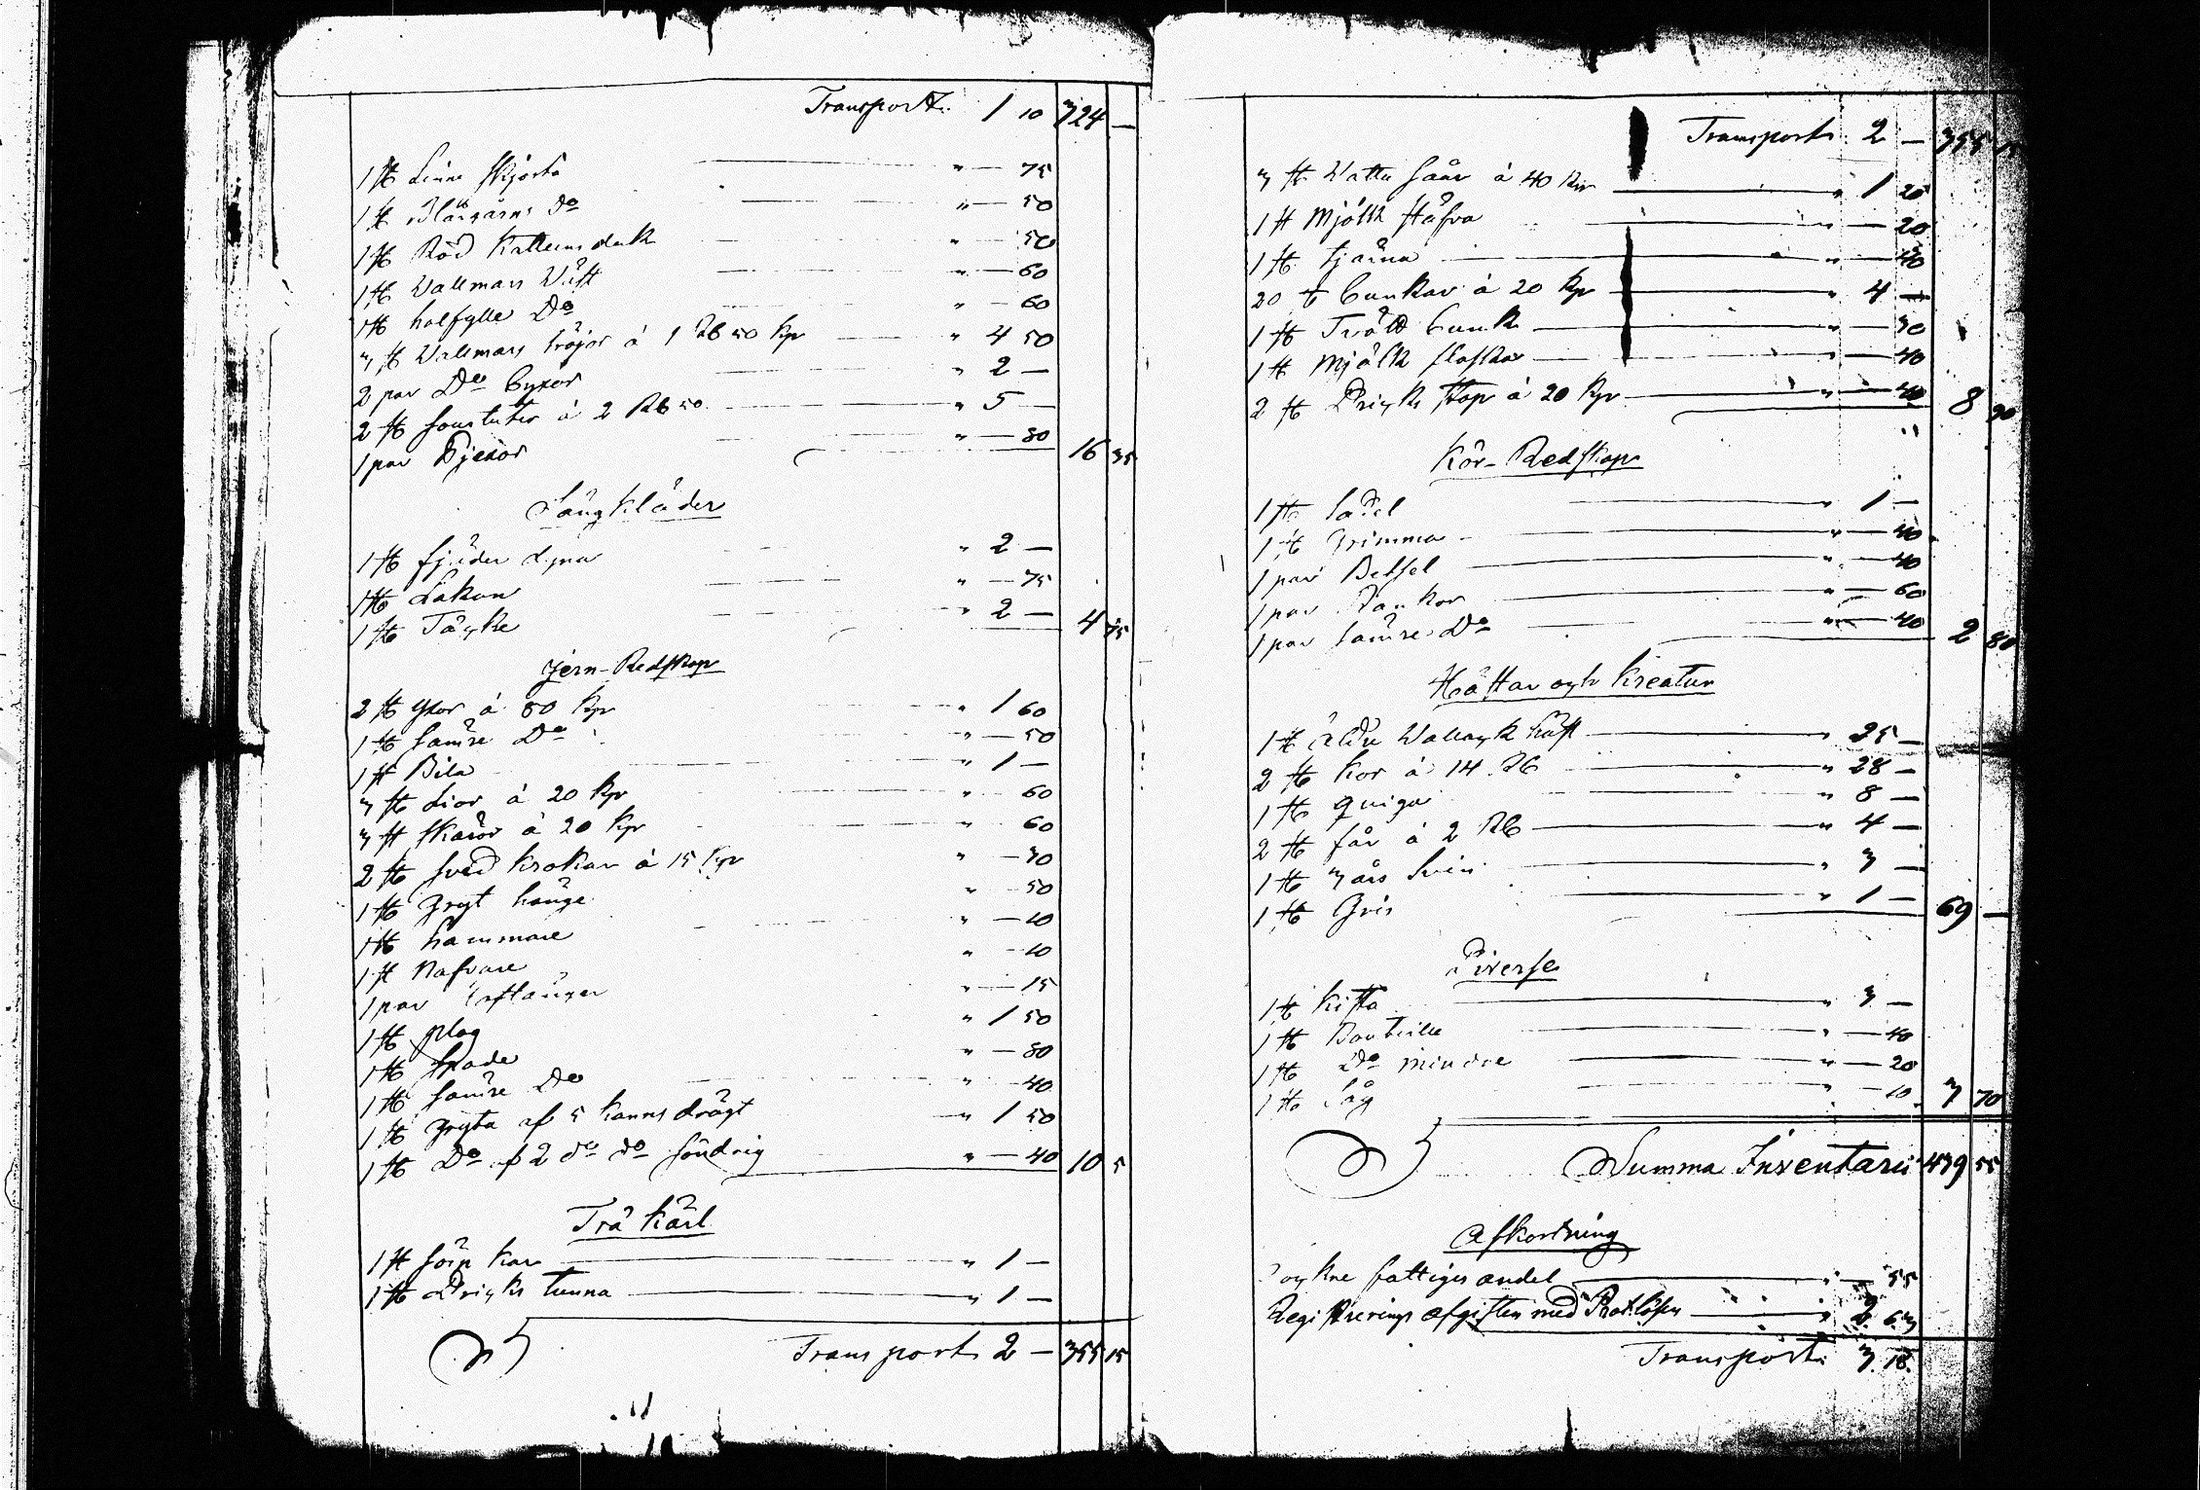 Transport. 1 10 324 —
1 st Linne skjorta " — 75
1 st Blårgarns Do " — 50
1 st Röd Kattunsduk " — 50
1 st Wallmars Wäst " — 60
1 st halfylle Do " — 60
3 st Wallmars tröjor à 1 Rb 50 Kpr " 4 50
2 par Do Byxor " 2 —
2 st à 2 Rb 50 " 5 —
1 par Pjexor " — 80 16 35
Sängkläder
1 st fjäder dyna " 2 —
1 st Lakan " — 75
1 st Täcke " 2 — 4 75
Jern-Redskap
2 st Yxor à 80 Kpr " 1 60
1 st sämre Do " — 50
1 st Bila " 1 —
3 st Lior à 20 Kpr " 60
3 st skäror à 20 Kpr " 60
2 st sved krokar à 15 Kpr " — 30
1 st Gryt hänge " — 50
1 st hammare " — 10
1 st Nafvare " — 10
1 par " — 15
1 st plog " 1 50
1 st spade " — 80
1 st sämre Do " — 40
1 st gryta af 5 kanns drägt " 1 50
1 st Do f 2 do do söndrig " — 40 10 5
Trä Kärl
1 st söip kar " 1 —
1 st Dricks tunna " 1 —
Transport 2 — 355 15
Transport 2 — 355 15
3 st Vattu Såar à 40 Kpr " 1 20
1 st Mjölk stäfva " — 20
1 st tjärna " — 40
20 st bunkar à 20 Kpr " 4 —
1 st Tvätt bunk " — 30
1 st Mjölk flaskor " — 40
2 st Dricks stop à 20 Kpr " — 40 8 90
Kör-Redskap
1 st Sadel " 1 —
1 st Grimma " — 40
1 par Betsel " — 40
1 par Rankor " — 60
1 par sämre Do " — 40 2 80
Hästar och Kreatur
1 st äldre Wallack häst " 25 —
2 st kor à 14 Rb " 28 —
1 st Quiga " 8 —
2 st får à 2 Rb " 4 —
1 st 3 års Svin " 3 —
1 st Gris " 1 — 69 —
Diverse
1 st Kista " 3 —
1 st Bouteille " — 40
1 st Do mindre " — 20
1 st Såg " — 10 3 70
Summa Inventarii 439 55
Afkortning
fattiges andel " — 55
Registrerings afgiften med " 2 63
Transport. 3. 18.